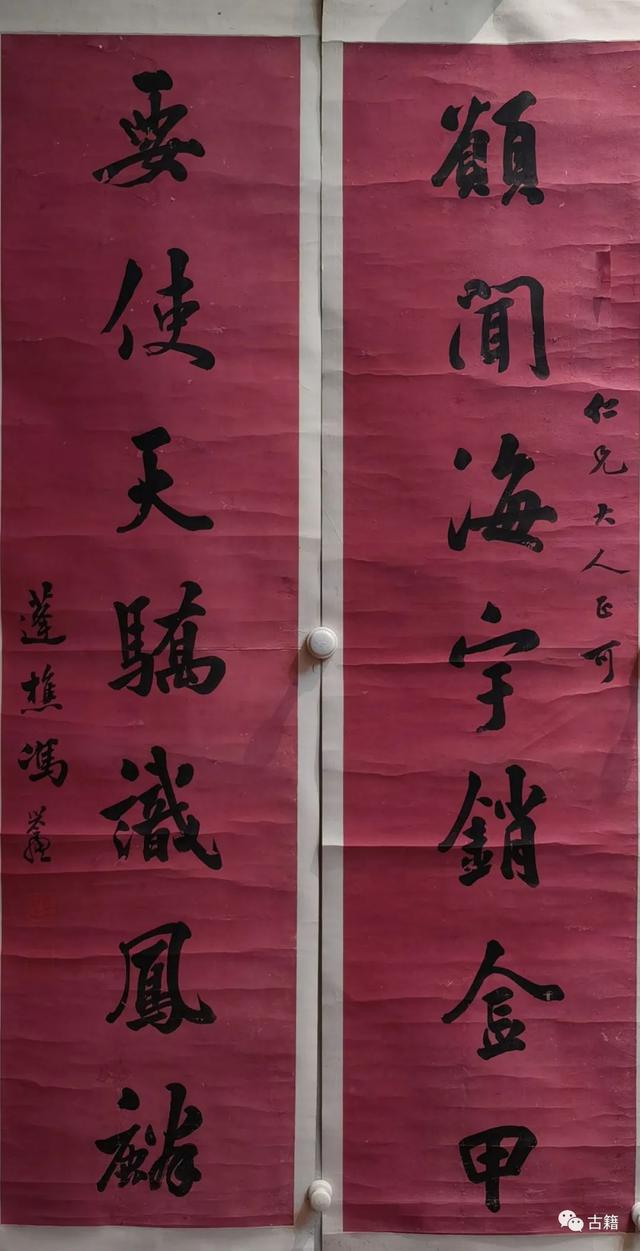 仁兄大人正可
願聞海宇銷金甲
要使天驕識鳳麟
蓮樵馮
古籍